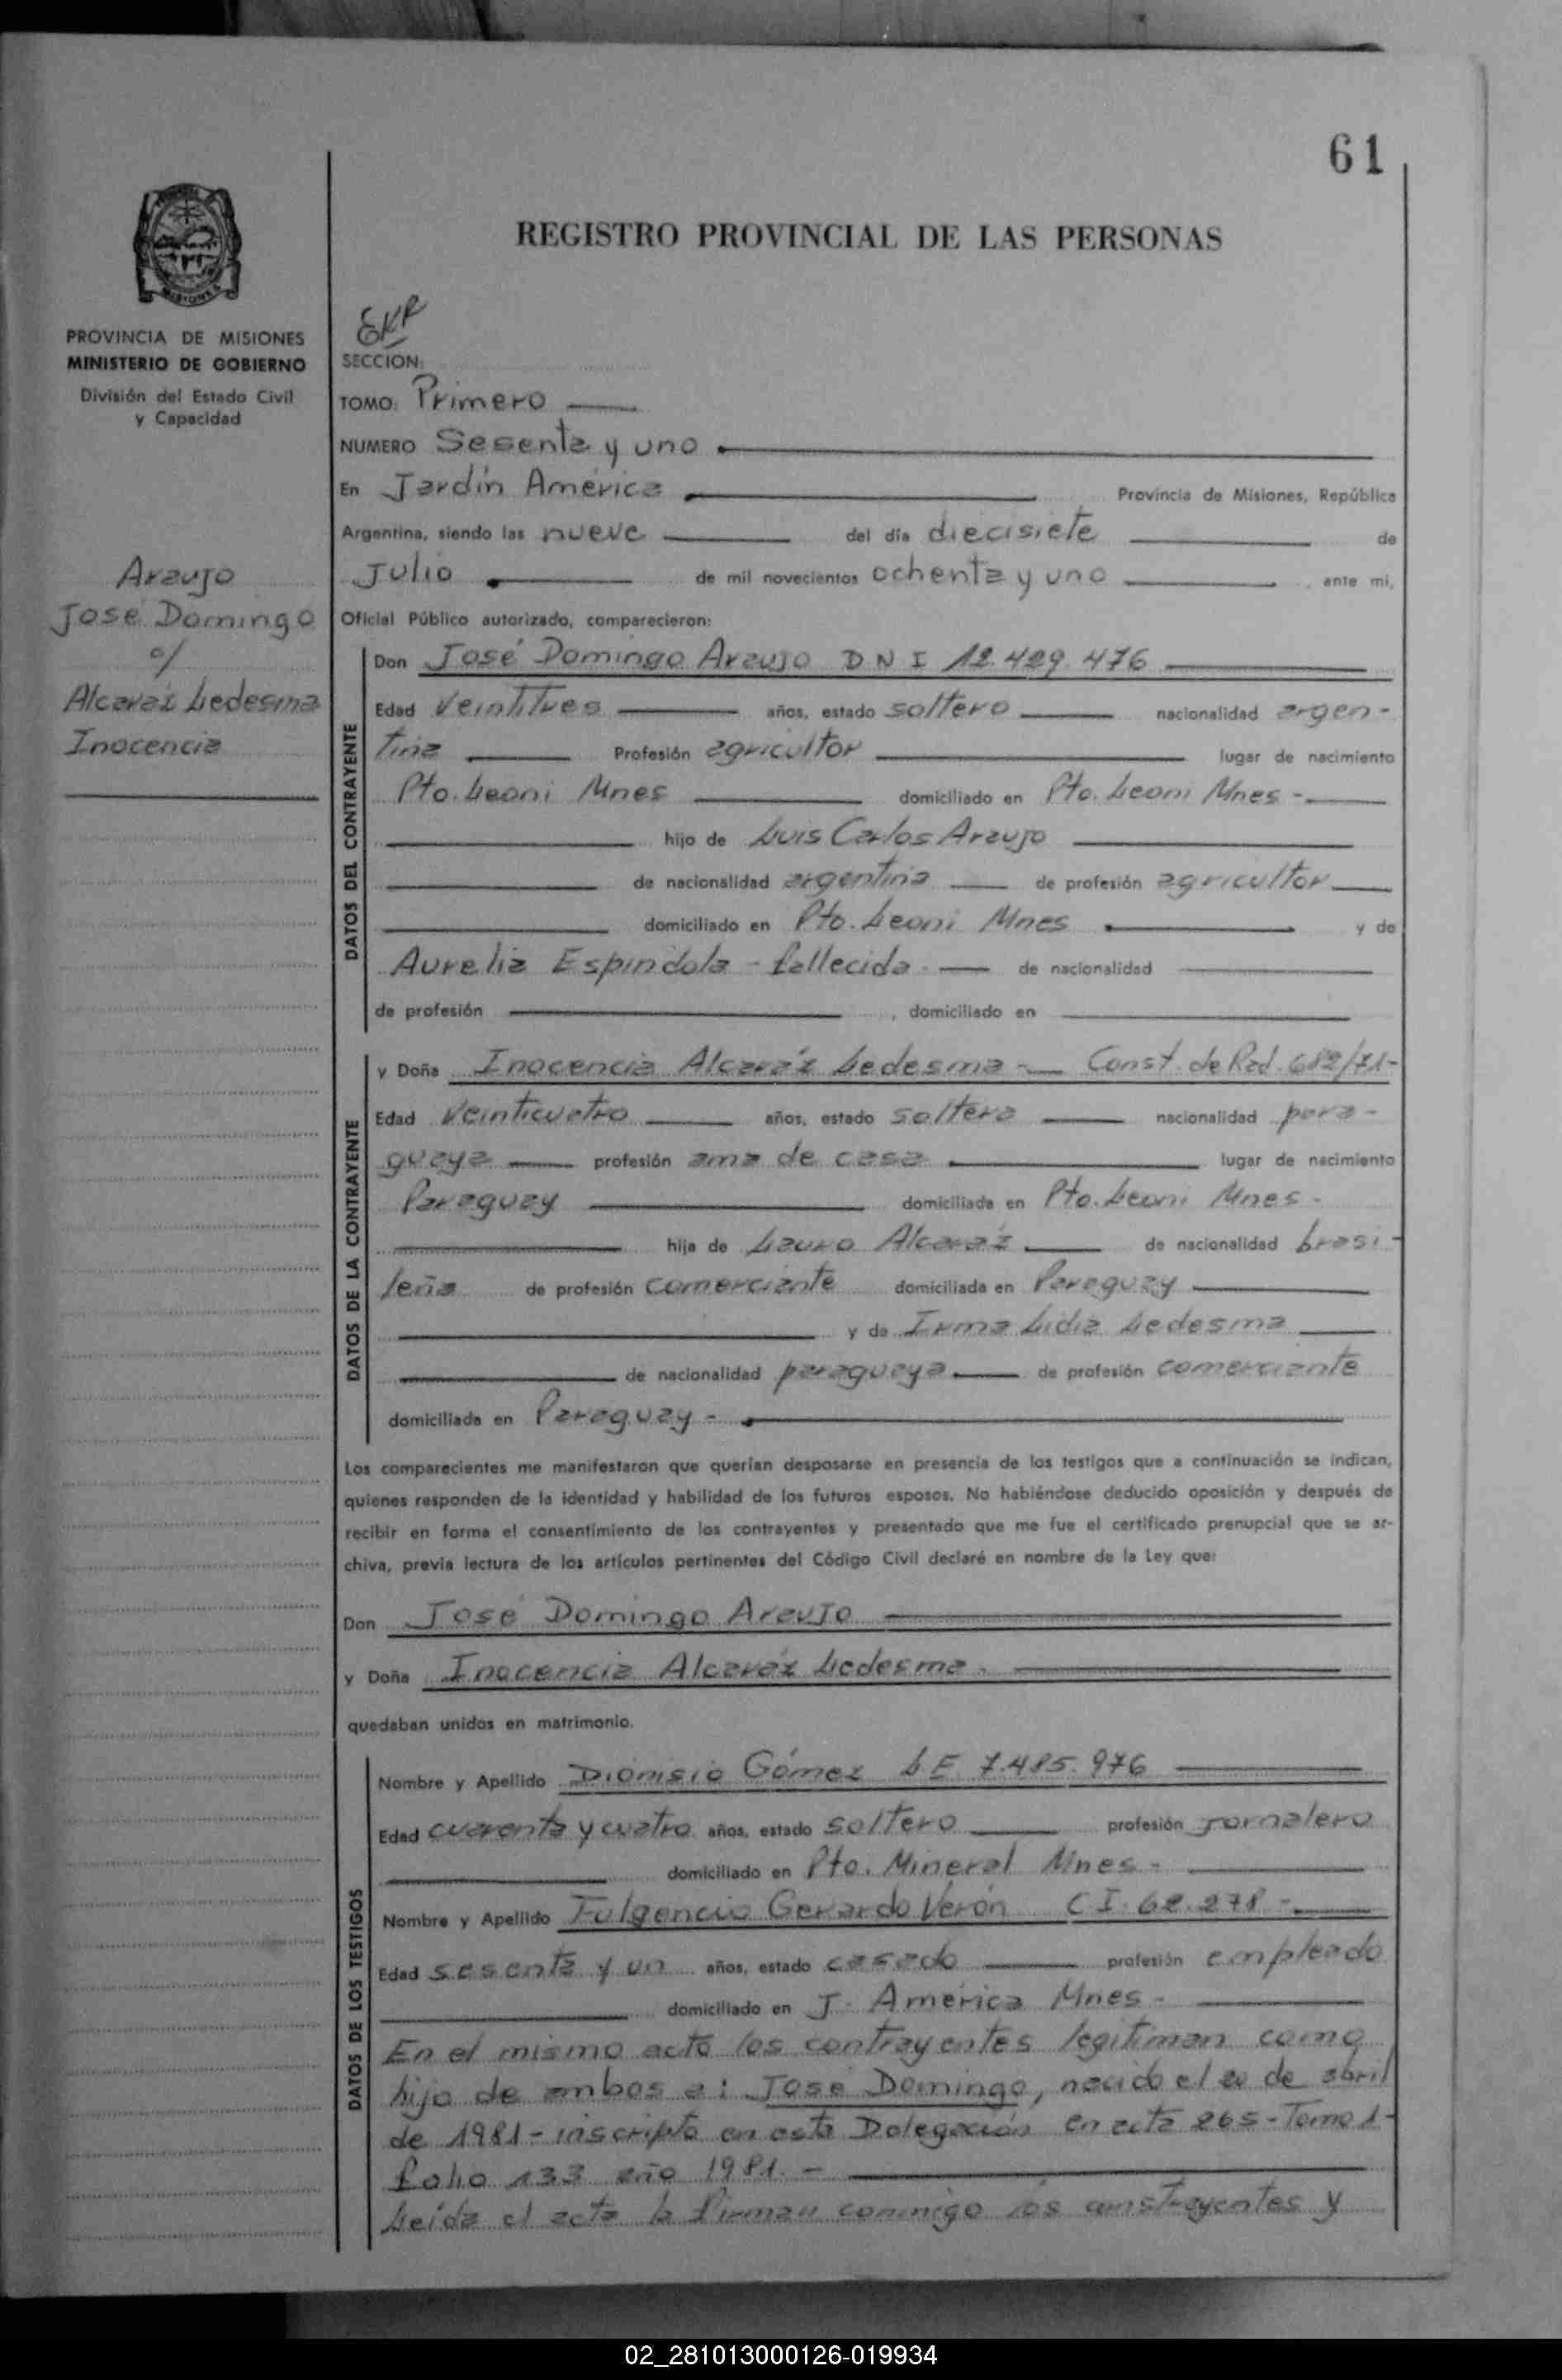 61
REGISTRO PROVINCIAL DE LAS PERSONAS
MISIONES
PROVINCIA DE MISIONES
MINISTERIO DE GOBIERNO
División del Estado Civil
y Capacidad
Araujo
José Domingo
c/
Alcaráz Ledesma
Inocencia
SECCION:
TOMO: Primero
NUMERO Sesenta y uno
En Jardín América Provincia de Misiones, República
Argentina, siendo las nueve del día diecisiete de
Julio de mil novecientos ochenta y uno, ante mi,
Oficial Público autorizado, comparecieron:
DATOS DEL CONTRAYENTE
Don José Domingo Araujo DNI 12.429.476
Edad veintitres años, estado soltero nacionalidad argen-
tina Profesión agricultor lugar de nacimiento
Pto. Leoni Mnes domiciliado en Pto. Leoni Mnes -
hijo de Luis Carlos Araujo
de nacionalidad argentina de profesión agricultor
domiciliado en Pto. Leoni Mnes y de
Aurelia Espindola - fallecida - de nacionalidad
de profesión , domiciliado en
DATOS DE LA CONTRAYENTE
y Doña Inocencia Alcaráz Ledesma - Const. de Rad. 682/71-
Edad veinticuatro años, estado soltera nacionalidad para-
guaya profesión ama de casa lugar de nacimiento
Paraguay domiciliada en Pto. Leoni Mnes -
hija de Lauro Alcaráz de nacionalidad brasi-
leña de profesión comerciante domiciliada en Paraguay
y de Irma Lidia Ledesma
de nacionalidad paraguaya de profesión comerciante
domiciliada en Paraguay -
Los comparecientes me manifestaron que querían desposarse en presencia de los testigos que a continuación se indican,
quienes responden de la identidad y habilidad de los futuros esposos. No habiéndose deducido oposición y después de
recibir en forma el consentimiento de los contrayentes y presentado que me fue el certificado prenupcial que se ar-
chiva, previa lectura de los artículos pertinentes del Código Civil declaré en nombre de la Ley que:
Don José Domingo Araujo
y Doña Inocencia Alcaráz Ledesma -
quedaban unidos en matrimonio.
DATOS DE LOS TESTIGOS
Nombre y Apellido Dionisio Gómez LE 7.485.976
Edad cuarenta y cuatro años, estado soltero profesión jornalero
domiciliado en Pto. Mineral Mnes -
Nombre y Apellido Fulgencio Gerardo Verón CI. 62.278 -
Edad sesenta y un años, estado casado profesión empleado
domiciliado en J. América Mnes -
En el mismo acto los contrayentes legitiman como
hijo de ambos a: José Domingo, nacido el 20 de abril
de 1981 - inscripto en esta Delegación en acta 265 - Tomo 1 -
folio 133 año 1981. -
Leída el acta la firman conmigo los constrayentes y
02_281013000126-019934